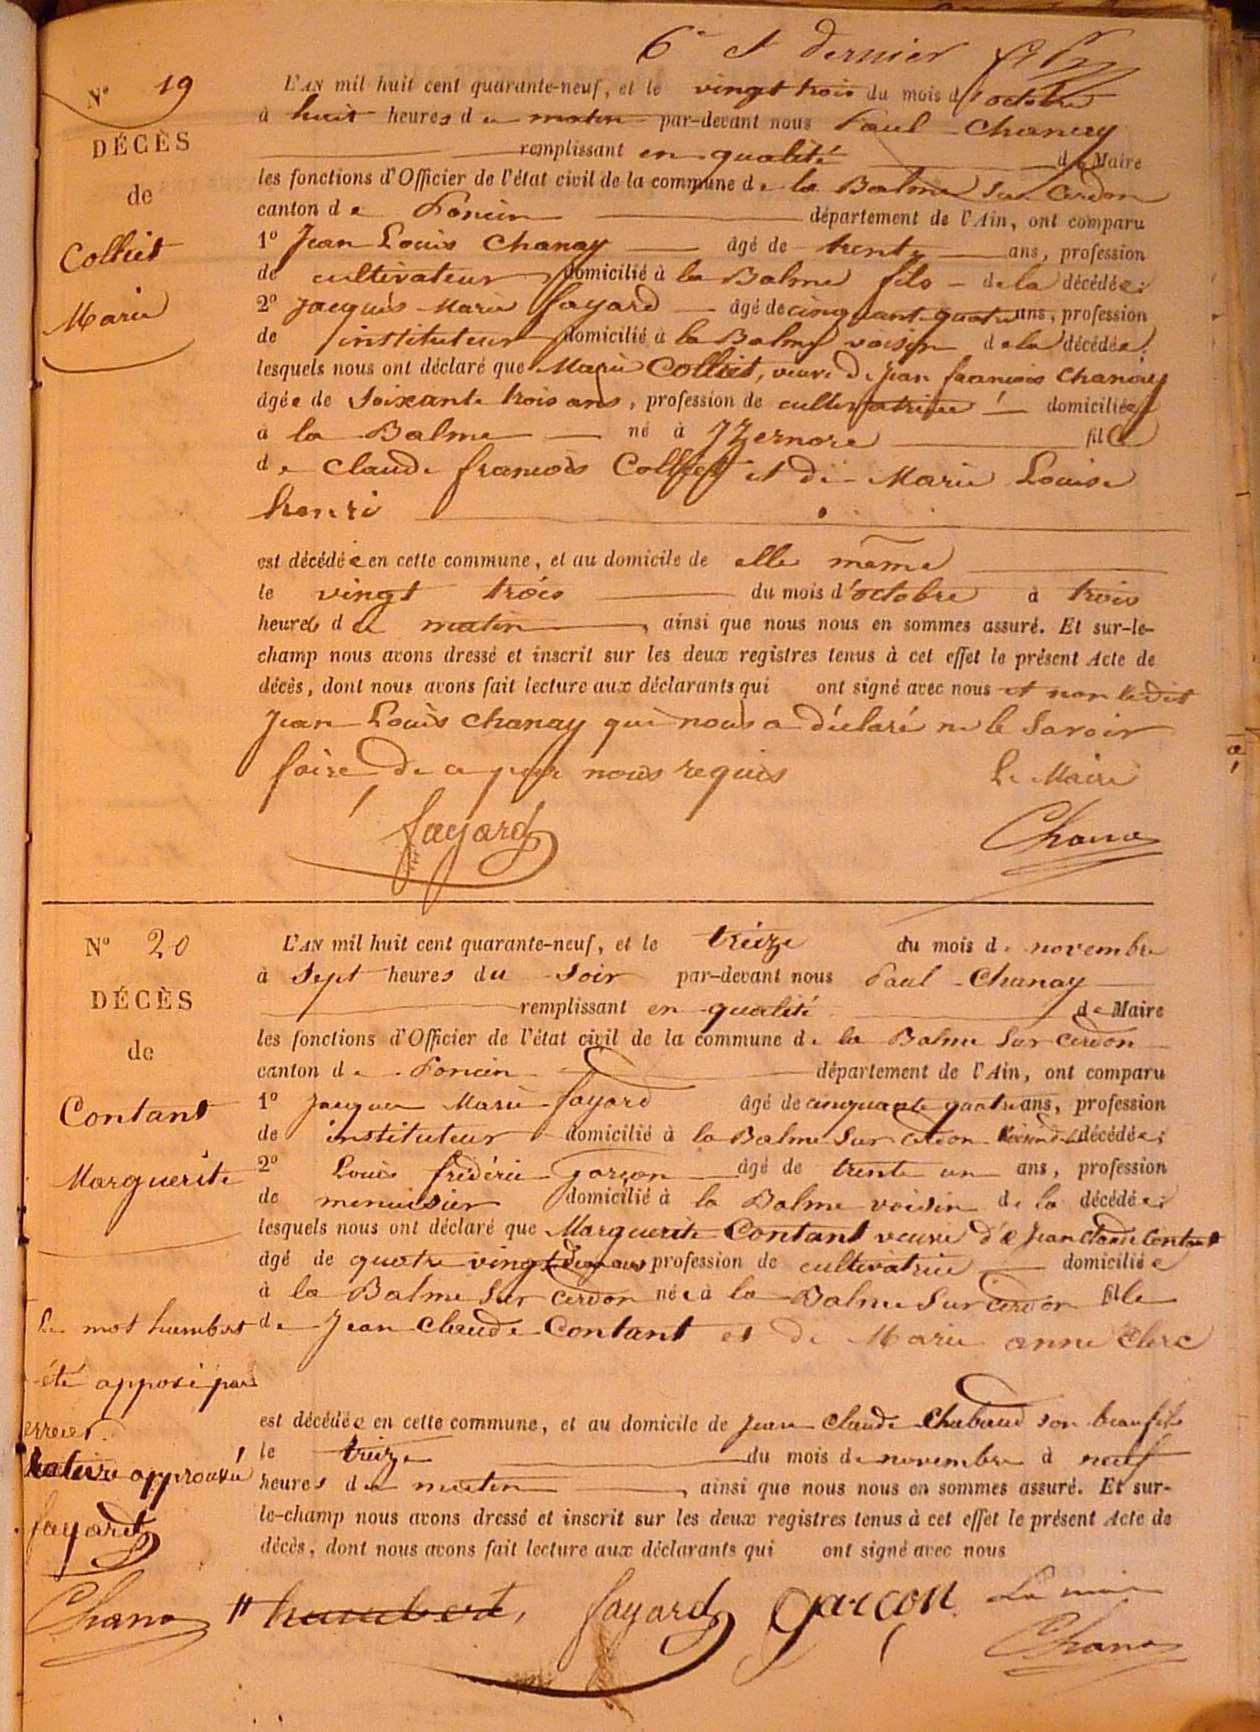 6e et dernier
N° 19
DÉCÈS
de
Colliet
Marie
L'AN mil huit cent quarante-neuf, et le vingt trois du mois d'octobre
à huit heures du matin par-devant nous Paul Chanay
remplissant en qualité de Maire
les fonctions d'Officier de l'état civil de la commune de la Balme sur Cerdon
canton de Poncin département de l'Ain, ont comparu
1° Jean Louis Chanay âgé de trente ans, profession
de cultivateur domicilié à la Balme fils de la décédée;
2° Jacques Marie fayard âgé de cinquante quatre ans, profession
de instituteur domicilié à la Balme voisin de la décédée,
lesquels nous ont déclaré que Marie Colliet, veuve de Jean françois Chanay
âgée de soixante trois ans, profession de cultivatrice domiciliée
à la Balme né à Izernore fille
de Claude françois Colliet et de Marie Louise
henri
est décédée en cette commune, et au domicile de elle même
le vingt trois du mois d'octobre à trois
heures du matin, ainsi que nous nous en sommes assuré. Et sur-le-
champ nous avons dressé et inscrit sur les deux registres tenus à cet effet le présent Acte de
décès, dont nous avons fait lecture aux déclarants qui ont signé avec nous et non ledit
Jean Louis Chanay qui nous a déclaré ne le savoir
faire de ce par nous requis Le Maire
fayard Chanay
N° 20
DÉCÈS
de
Contant
Marguerite
L'AN mil huit cent quarante-neuf, et le treize du mois de novembre
à sept heures du soir par-devant nous Paul Chanay
remplissant en qualité de Maire
les fonctions d'Officier de l'état civil de la commune de la Balme sur Cerdon
canton de Poncin département de l'Ain, ont comparu
1° Jacques Marie fayard âgé de cinquante quatre ans, profession
de instituteur domicilié à la Balme sur Cerdon voisin de la décédée;
2° Louis frédéric garçon âgé de trente un ans, profession
de menuisier domicilié à la Balme voisin de la décédée;
lesquels nous ont déclaré que Marguerite Contant veuve de Jean Claude Contant
âgé de quatre vingt deux ans profession de cultivatrice domiciliée
à la Balme sur Cerdon née à la Balme sur Cerdon fille
de Jean Claude Contant et de Marie anne Clerc
est décédée en cette commune, et au domicile de Jean Claude Chabaud son beau fils
le treize du mois de novembre à neuf
heures du matin, ainsi que nous nous en sommes assuré. Et sur-
le-champ nous avons dressé et inscrit sur les deux registres tenus à cet effet le présent Acte de
décès, dont nous avons fait lecture aux déclarants qui ont signé avec nous
Le mot humbert
été apposé par
erreur.
rature approuvé
fayard
Chanay
humbert, fayard garçon Le maire
Chanay